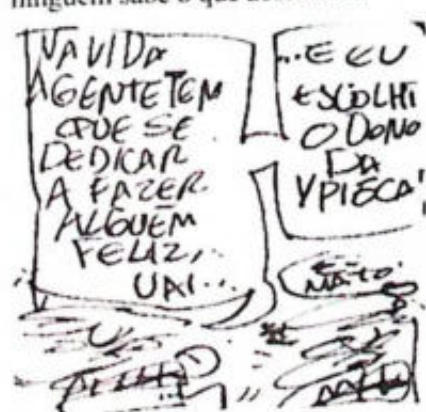 ninguém sabe o que
NA VIDA
A GENTE TEM
QUE SE
DEDICAR
A FAZER
ALGUÉM
FELIZ,
UAI...
...E EU
ESCOLHI
O DONO
DA
YPIÓCA!